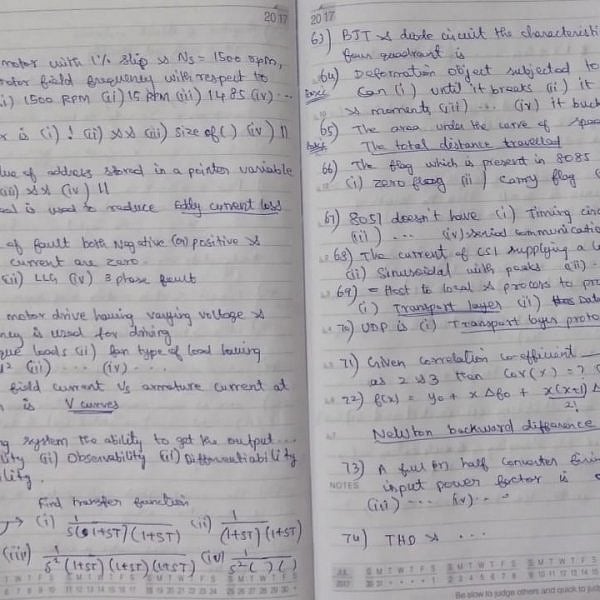 2017
motor with 1% slip & Ns = 1500 rpm,
rotor field frequency with respect to
(i) 1500 RPM (ii) 15 RPM (iii) 1485 (iv) ...
is (i) ! (ii) ** (iii) size of ( ) (iv) ||
value of address stored in a pointer variable
(iii) ** (iv) ||
is used to reduce Eddy current loss
of fault both Negative (or) positive &
current are zero.
(ii) LLG (iv) 3 phase fault
motor drive having varying voltage &
is used for driving
loads (ii) fan type of load having
(iii) ... (iv) ...
field current Vs armature current at
is V curves
system the ability to get the output ...
(ii) Observability (iii) Differentiability
Find transfer function
(i) 1/S(1+ST)(1+ST) (ii) 1/(1+ST)(1+ST)
(iii) 1/S²(1+ST)(1+ST)(1+ST) (iv) 1/S²( )( )
2017
63) BJT & diode circuit the characteristi
four quadrant is
64) Deformation object subjected to
Can (i) until it breaks (ii) it
& moments (iii) ... (iv) it buck
65) The area under the curve of
The total distance travelled
66) The flag which is present in 8085
(i) zero flag (ii) carry flag
67) 8051 doesn't have (i) Timing circ
(iii) ... (iv) serial communicatio
68) The current of CSI supplying a
(ii) Sinusoidal with peaks (iii) -
69) Host to local & process to pro
(i) Transport layer (ii) Data
70) UDP is (i) Transport layer proto
71) Given correlation co-efficient
as 2 & 3 then Cov(x) = ?
72) f(x) = y0 + x Δf0 + x(x+1)/2! Δ
Newton backward difference
73) A full (or) half converter firin
input power factor is
(iii) ... (iv) ...
NOTES
74) THD & ...
JUL 2017
Be slow to judge others and quick to jud